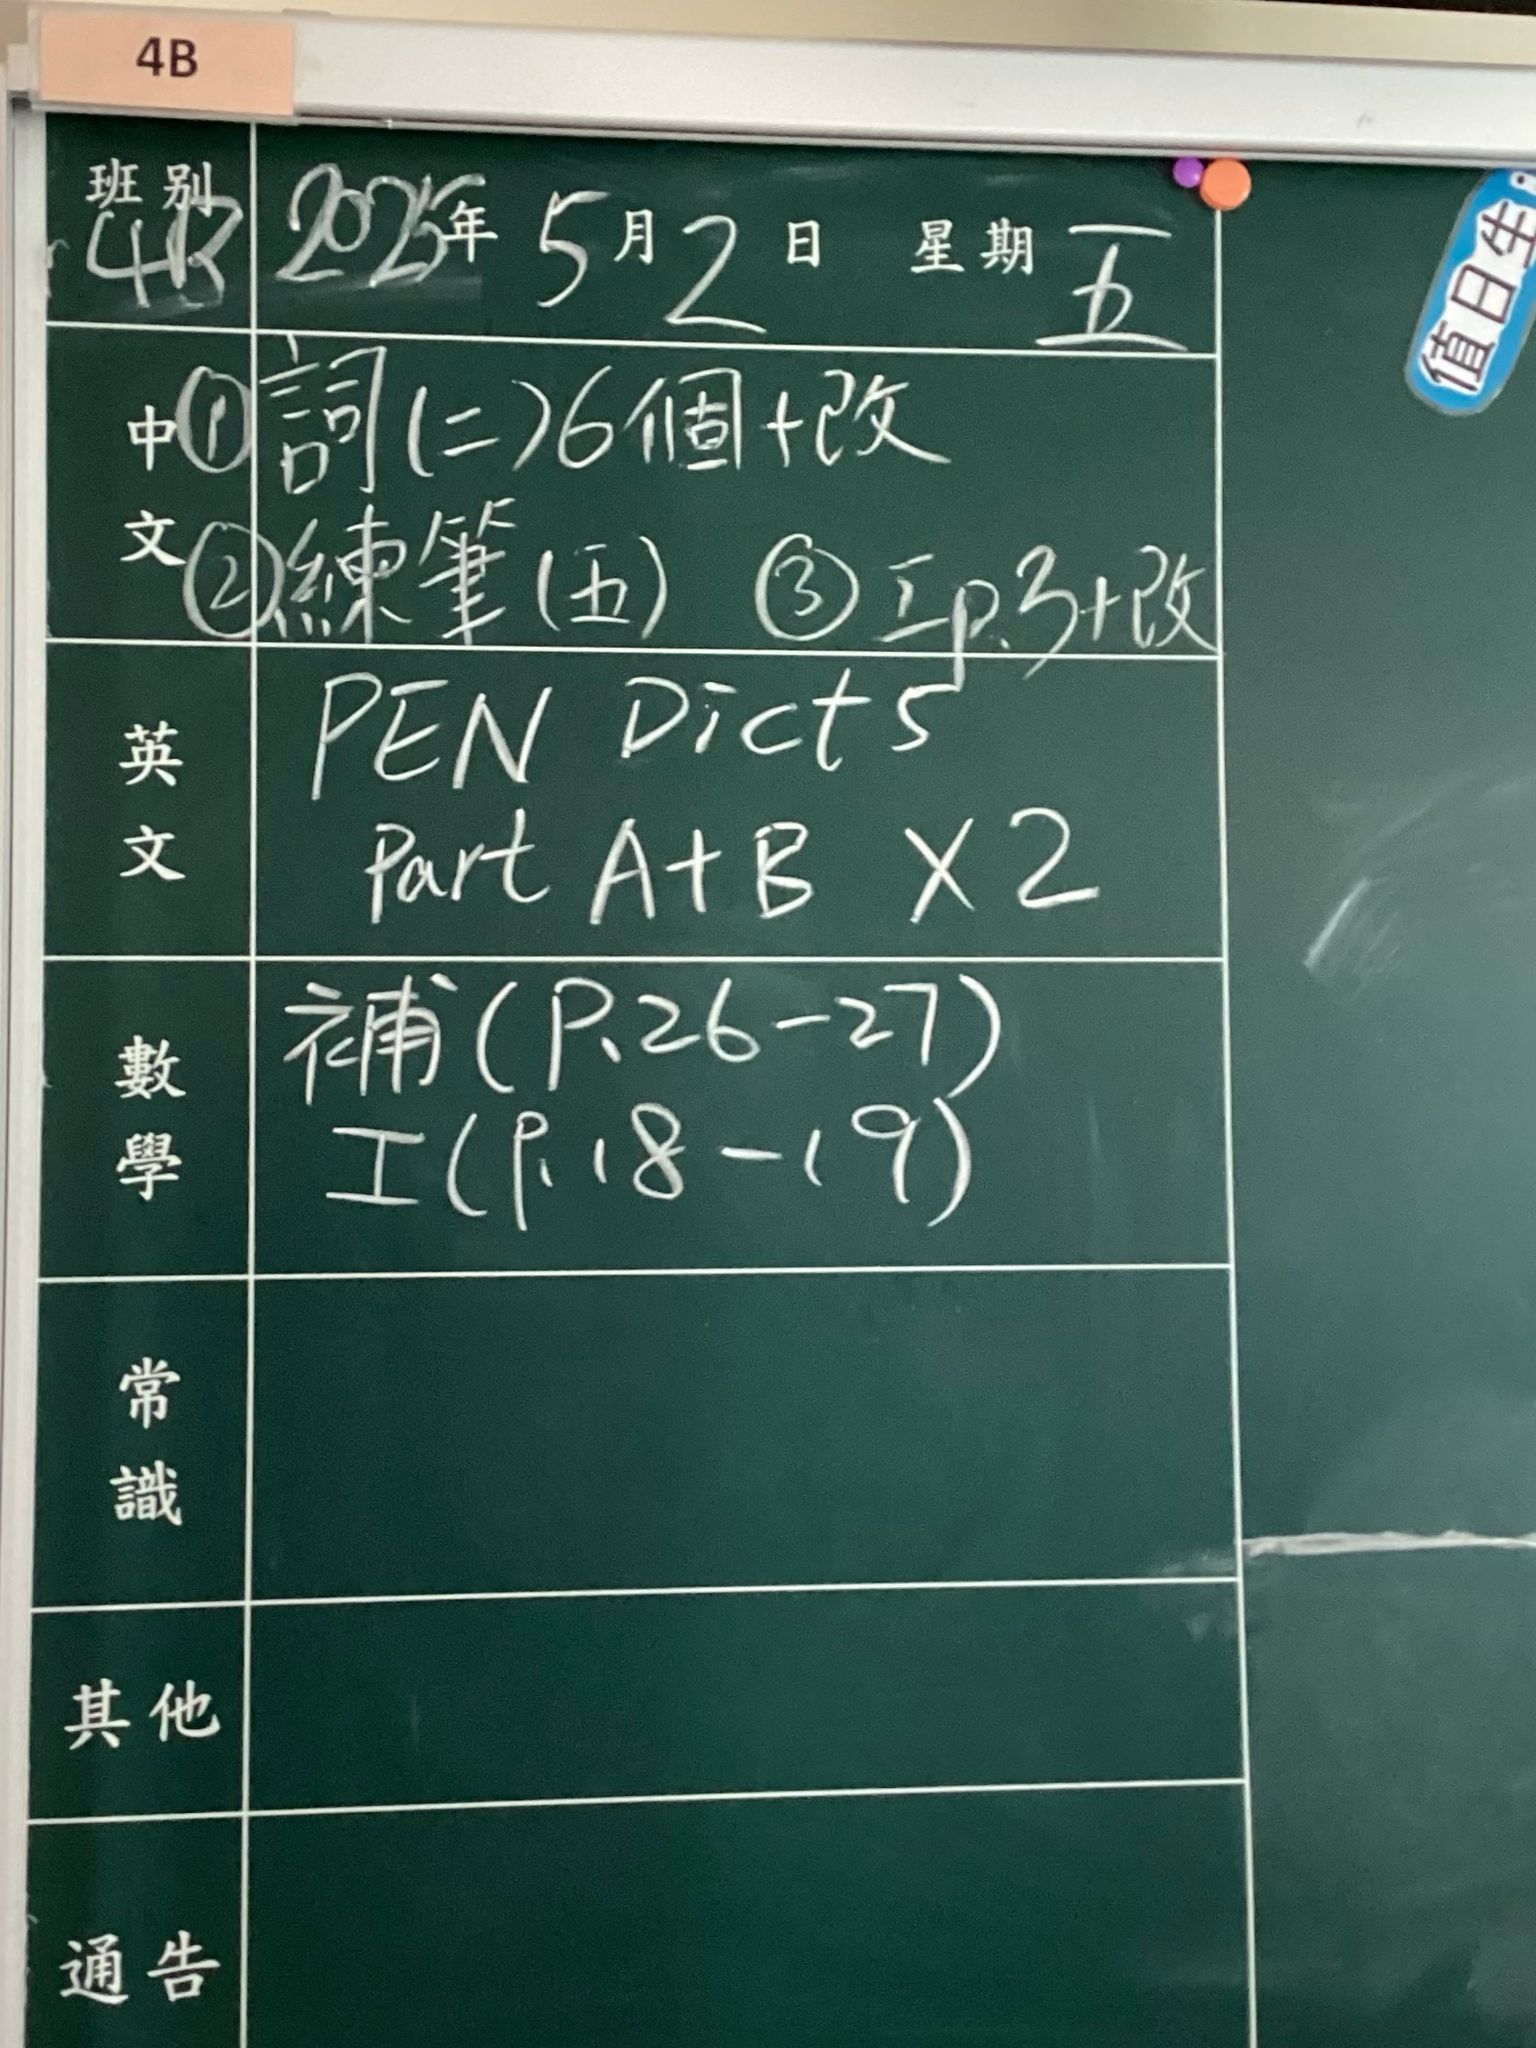 4B
班別 4B 2025年 5月2日 星期五
值日生
中文 ①詞(二)6個+改
②練筆(五) ③工p.3+改
英文 PEN Dict 5
Part A+B ×2
數學 補(P.26-27)
工(P.18-19)
常識
其他
通告